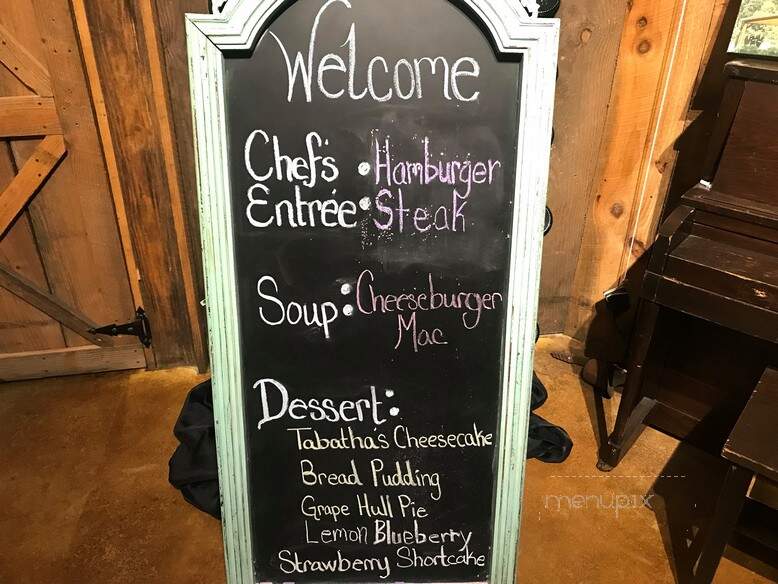 Welcome
Chef's : Hamburger
Entrée : Steak
Soup: Cheeseburger
Mac
Dessert:
Tabatha's Cheesecake
Bread Pudding
Grape Hull Pie
Lemon Blueberry
Strawberry Shortcake
menupix